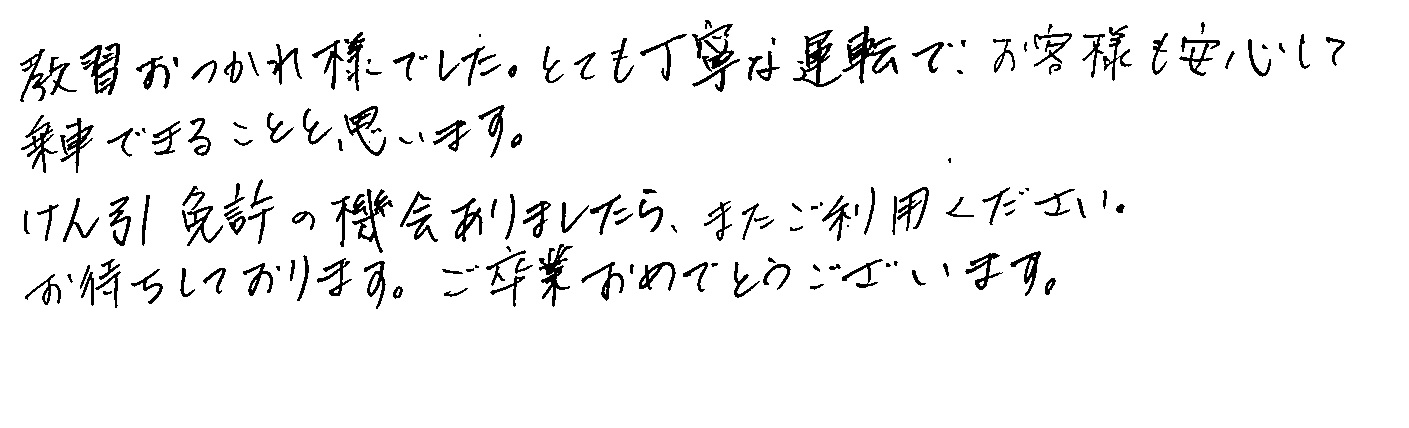 教習おつかれ様でした。とても丁寧な運転で、お客様も安心して
乗車できることと思います。
けん引免許の機会ありましたら、またご利用ください。
お待ちしております。ご卒業おめでとうございます。